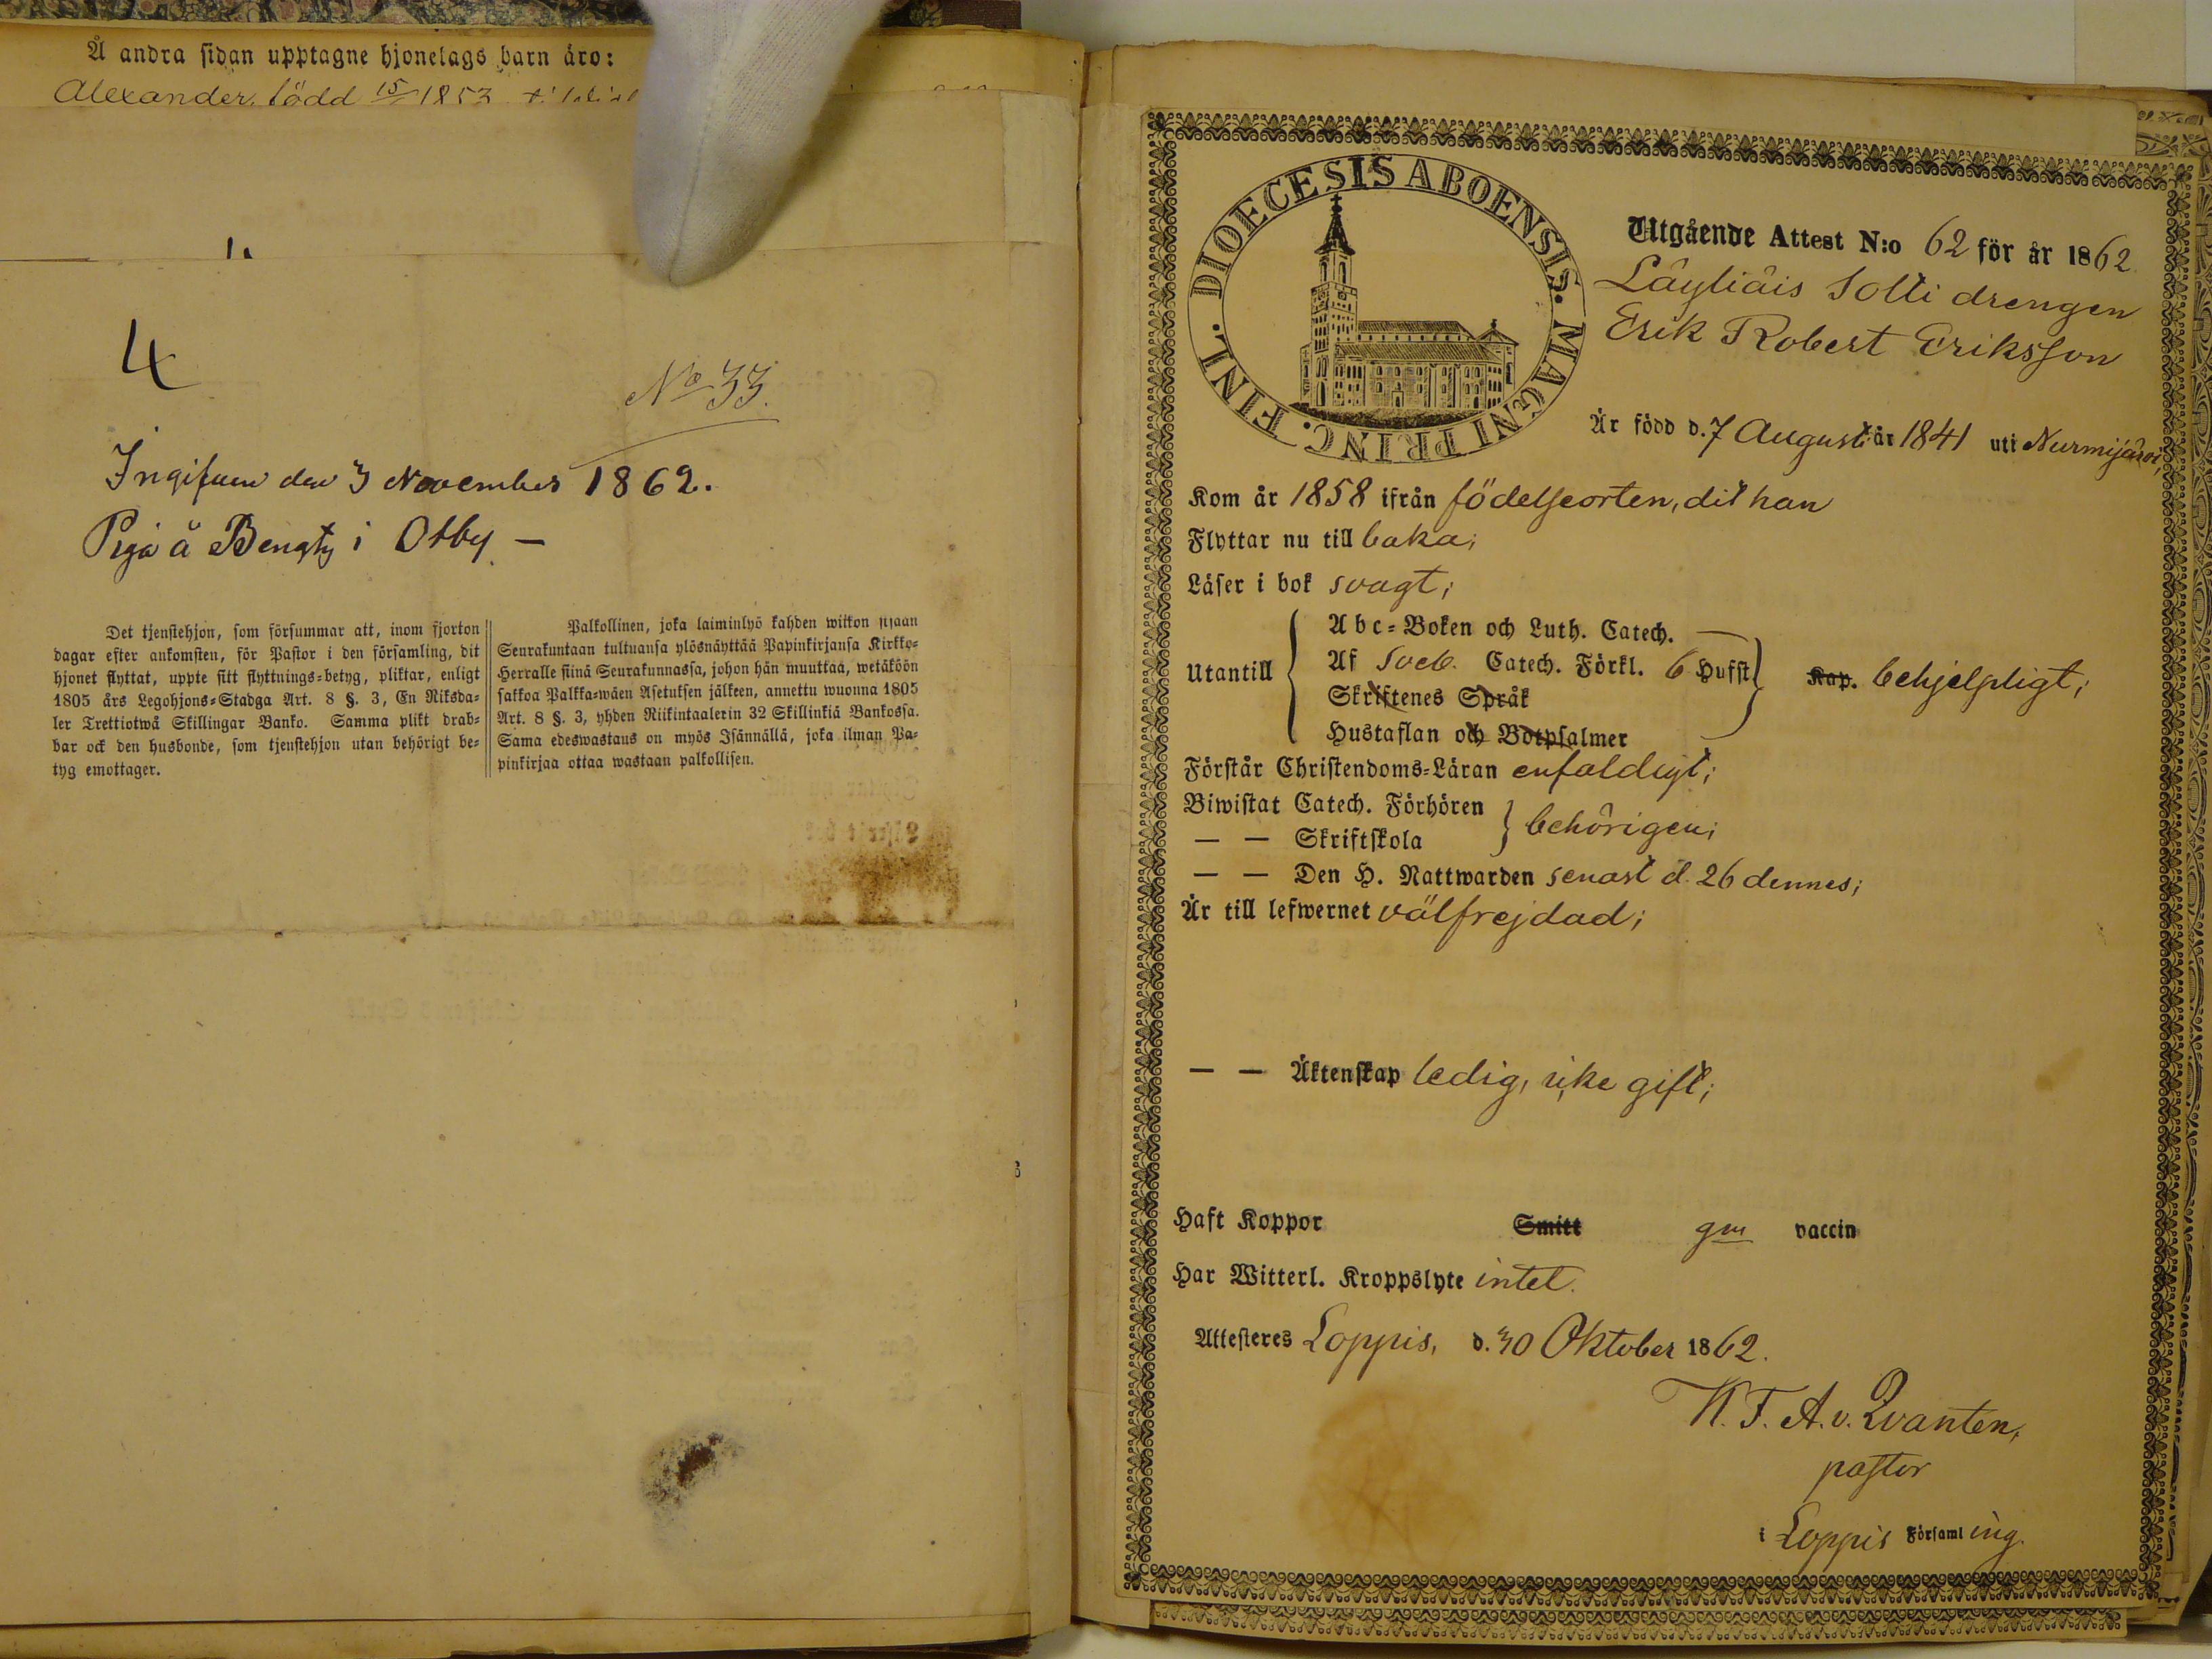 Å andra sidan upptagne hjonelags barn äro:
Alexander, född 15/ 1853
4
No 33.
Ingifven den 3 November 1862.
Piga å Bengts i Otby –
Det tjenstehjon, som försummar att, inom fjorton
dagar efter ankomsten, för Pastor i den församling, dit
hjonet flyttat, uppte sitt flyttnings-betyg, pliktar, enligt
1805 års Legohjons-Stadga Art. 8 §. 3, En Riksda-
ler Trettiotwå Skillingar Banko. Samma plikt drab-
bar ock den husbonde, som tjenstehjon utan behörigt be-
tyg emottager.
Palkollinen, joka laiminlyö kahden wiikon sisään
Seurakuntaan tultuansa ylösnäyttää Papinkirjansa Kirkko-
Herralle siinä Seurakunnassa, johon hän muuttaa, wetäköön
sakkoa Palkka-wäen Asetuksen jälkeen, annettu wuonna 1805
Art. 8 §. 3, yhden Riikintaalerin 32 Skillinkiä Bankossa.
Sama edeswastaus on myös Isännällä, joka ilman Pa-
pinkirjaa ottaa wastaan palkollisen.
DIOECESIS ABOENSIS. MAGNI PRINC. FINL.
Utgående Attest N:o 62 för år 1862.
Läyliäis Solti drengen
Erik Robert Eriksson
Är född d. 7 August år 1841 uti Nurmijärvi,
Kom år 1858 ifrån födelseorten, dit han
Flyttar nu till baka;
Läser i bok svagt;
Utantill
Abc-Boken och Luth. Catech.
Af Sveb. Catech. Förkl. 6 Hufst Kap. behjelpligt;
Skriftenes Språk
Hustaflan och Botpsalmer
Förstår Christendoms-Läran enfaldigt;
Biwistat Catech. Förhören
— — Skriftskola behörigen;
— — Den H. Nattwarden senast d. 26 dennes;
Är till lefwernet välfrejdad;
— — Äktenskap ledig, icke gift;
Haft Koppor Smitt gm vaccin
Har Witterl. Kroppslyte intet.
Attesteres Loppis, d. 30 Oktober 1862.
K. F. A. v. Qvanten,
pastor
i Loppis Församling.